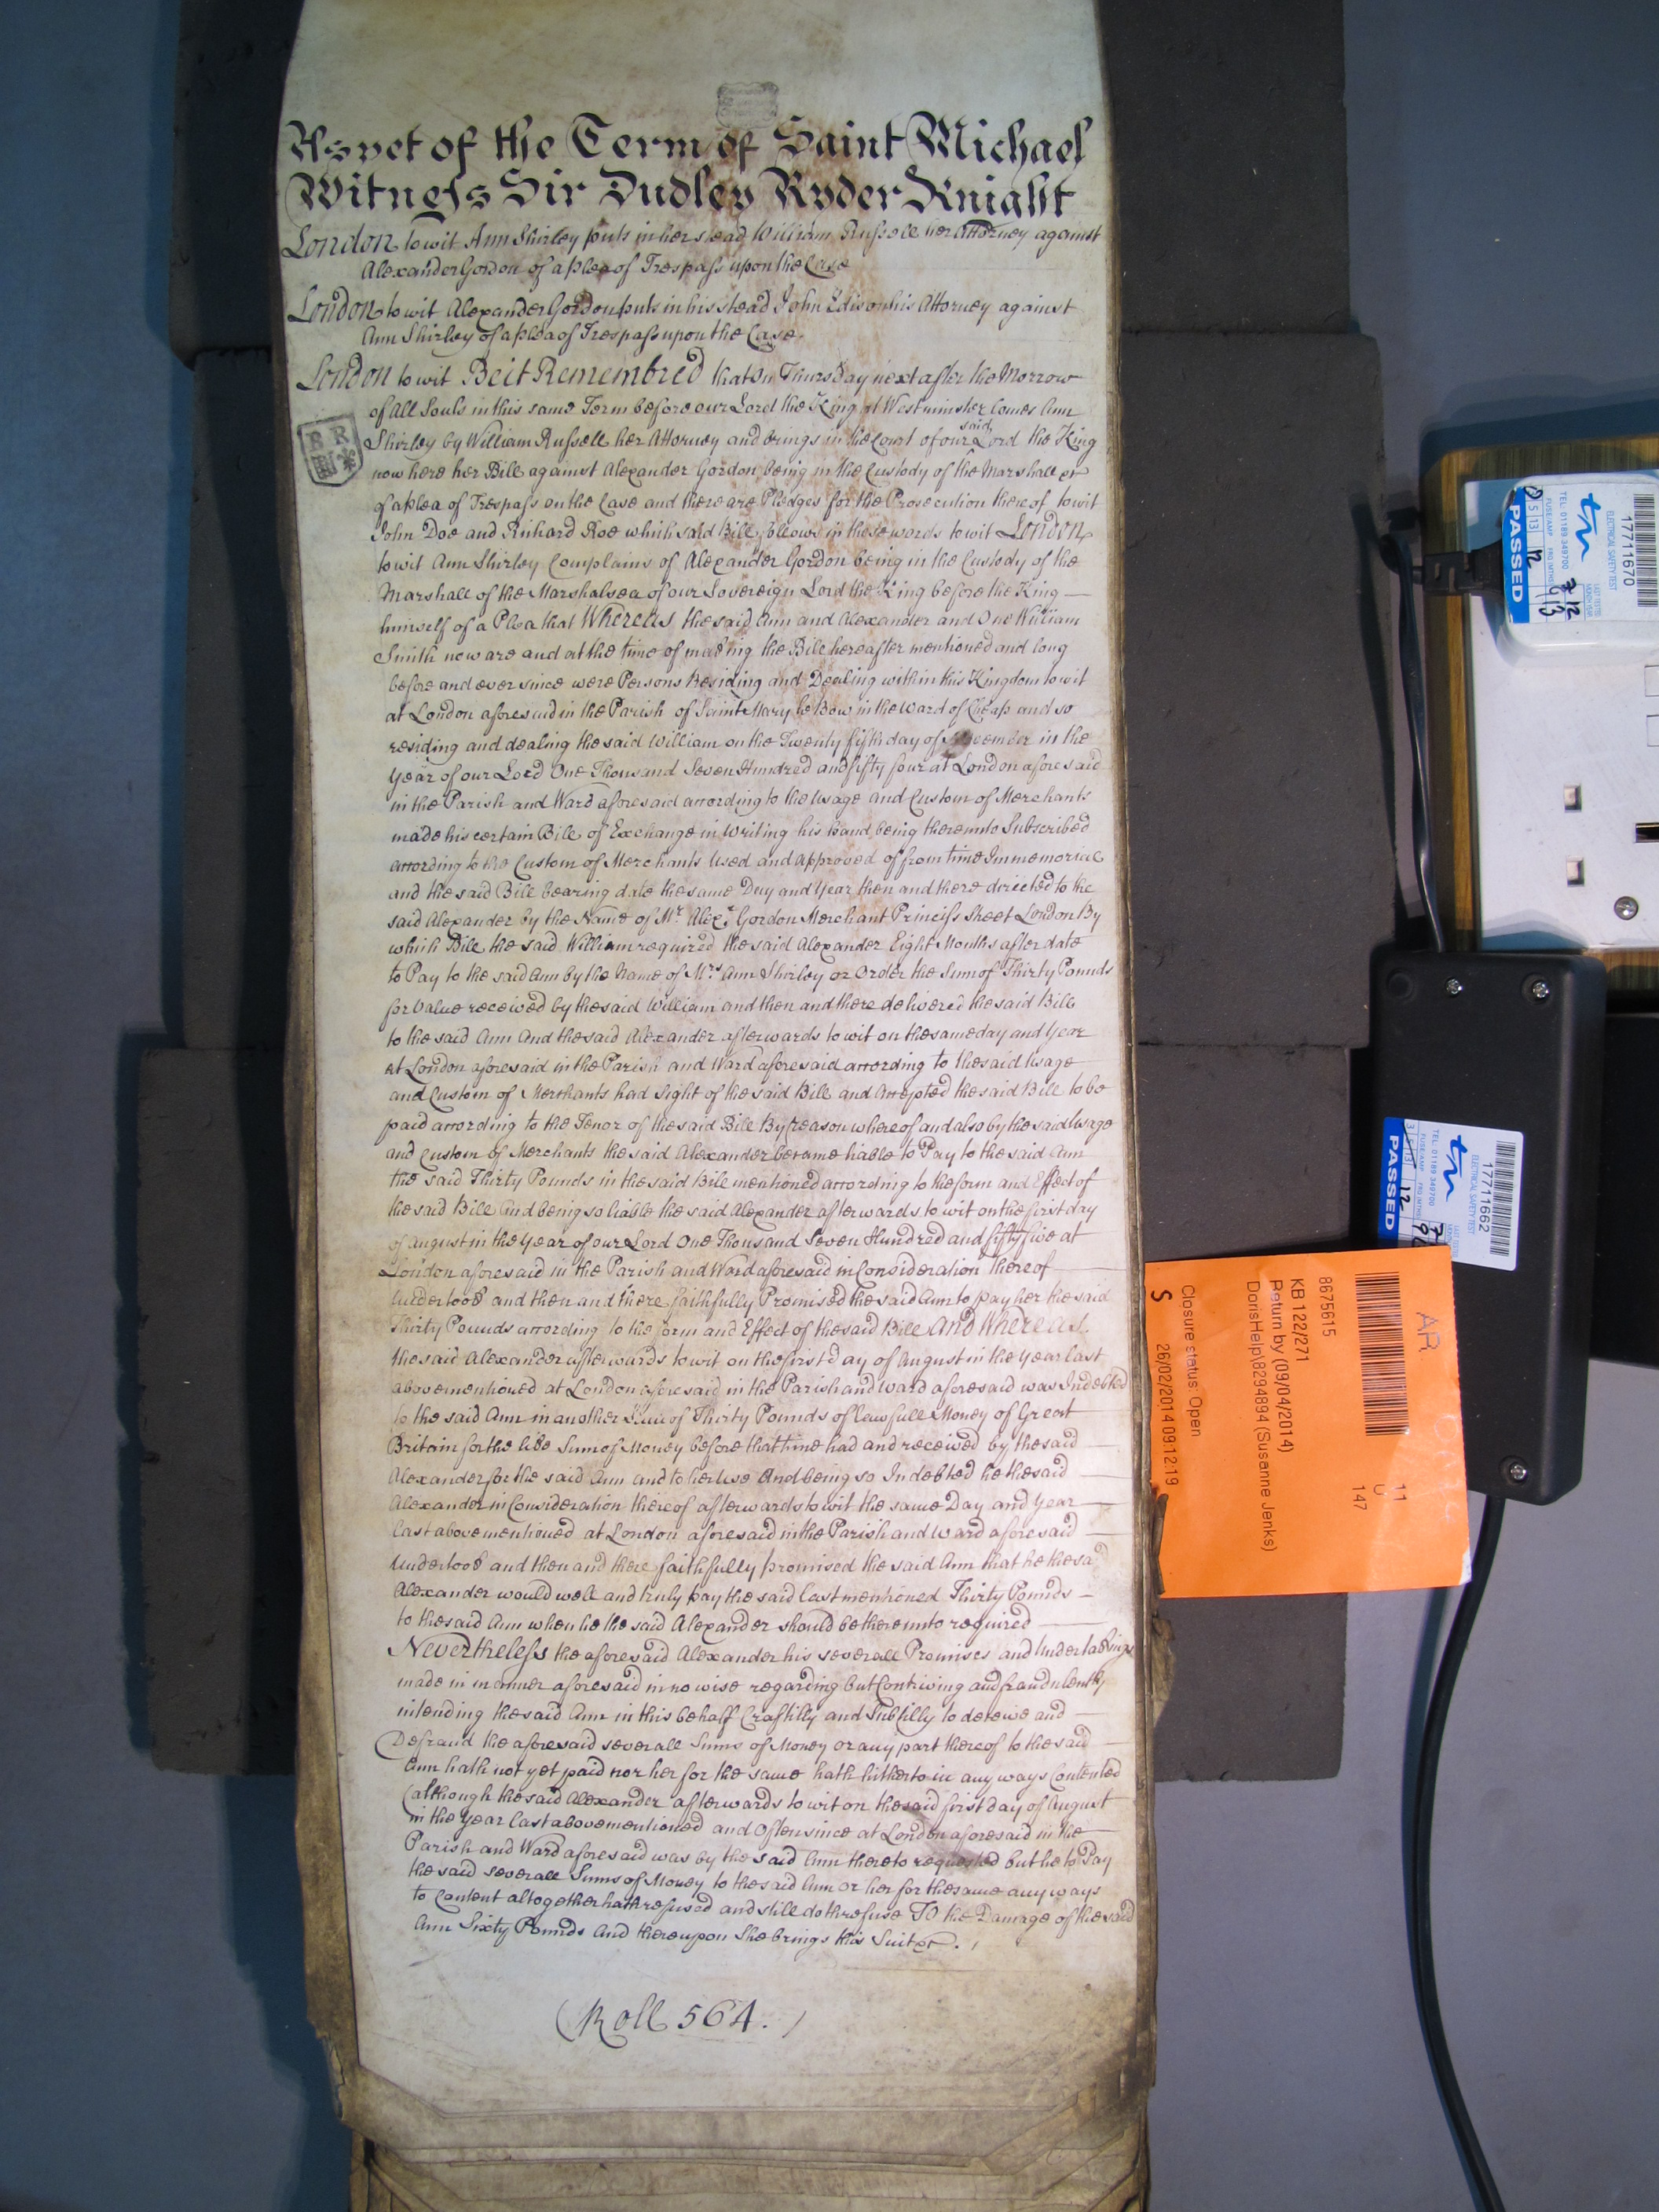 As yet of the Term of Saint Michael
Witness Sir Dudley Ryder Knight
London to wit Ann Shirley puts in her stead William Russell her Attorney against
Alexander Gordon of a plea of Trespass upon the Case
London to wit Alexander Gordon puts in his stead John Edison his Attorney against
Ann Shirley of a plea of Trespass upon the Case.
London to wit Be it Remembred that on Thursday next after the Morrow
of All Souls in this same Term before our Lord the King at Westminster Comes Ann
Shirley by William Russell her Attorney and brings in the Court of our said Lord the King
now here her Bill against Alexander Gordon being in the Custody of the Marshall &c
of a plea of Trespass on the Case and there are Pledges for the Prosecution thereof to wit
John Doe and Richard Roe which said Bill follows in these words to wit London
to wit Ann Shirley Complains of Alexander Gordon being in the Custody of the
Marshall of the Marshalsea of our Sovereign Lord the King before the King
himself of a Plea that Whereas the said Ann and Alexander and One William
Smith now are and at the time of making the Bill hereafter mentioned and long
before and ever since were Persons Residing and Dealing within this Kingdom to wit
at London aforesaid in the Parish of Saint Mary le Bow in the Ward of Cheap and so
residing and dealing the said William on the Twenty fifth day of November in the
Year of our Lord One Thousand Seven Hundred and fifty four at London aforesaid
in the Parish and Ward aforesaid according to the Usage and Custom of Merchants
made his certain Bill of Exchange in Writing his hand being thereunto Subscribed
according to the Custom of Merchants Used and approved of from time Immemorial
and the said Bill bearing date the same Day and Year then and there directed to the
said Alexander by the Name of Mr. Alexr. Gordon Merchant Princess Street London By
which Bill the said William required the said Alexander Eight Months after date
to Pay to the said Ann by the Name of Mrs. Ann Shirley or Order the Sum of Thirty Pounds
for Value received by the said William and then and there delivered the said Bill
to the said Ann And the said Alexander afterwards to wit on the same day and Year
at London aforesaid in the Parish and Ward aforesaid according to the said Usage
and Custom of Merchants had Sight of the said Bill and Accepted the said Bill to be
paid according to the Tenor of the said Bill By reason whereof and also by the said Usage
and Custom of Merchants the said Alexander became liable to Pay to the said Ann
the said Thirty Pounds in the said Bill mentioned according to the form and Effect of
the said Bill And being so liable the said Alexander afterwards to wit on the first day
of August in the Year of our Lord One Thousand Seven Hundred and fifty five at
London aforesaid in the Parish and Ward aforesaid in Consideration thereof
Undertook and then and there faithfully Promised the said Ann to pay her the said
Thirty Pounds according to the form and Effect of the said Bill And Whereas
the said Alexander afterwards to wit on the first day of August in the Year last
abovementioned at London aforesaid in the Parish and Ward aforesaid was Indebted
to the said Ann in another Sum of Thirty Pounds of lawfull Money of Great
Britain for the like Sum of Money before that time had and received by the said
Alexander for the said Ann and to her Use And being so Indebted he the said
Alexander in Consideration thereof afterwards to wit the same Day and Year
last abovementioned at London aforesaid in the Parish and Ward aforesaid
Undertook and then and there faithfully promised the said Ann that he the sd
Alexander would well and truly pay the said last mentioned Thirty Pounds
to the said Ann when he the said Alexander should be thereunto required
Nevertheless the aforesaid Alexander his severall Promises and Undertakings
made in manner aforesaid in no wise regarding but Contriving and fraudulently
intending the said Ann in this behalf Craftilly and Subtilly to deceive and
Defraud the aforesaid severall Sums of Money or any part thereof to the said
Ann hath not yet paid nor her for the same hath hitherto in any ways Contented
(although the said Alexander afterwards to wit on the said first day of August
in the Year last abovementioned and Often since at London aforesaid in the
Parish and Ward aforesaid was by the said Ann thereto requested but he to Pay
the said severall Sums of Money to the said Ann or her for the same any ways
to Content altogether hath refused and still doth refuse To the Damage of the said
Ann Sixty Pounds And thereupon She brings this Suit &c.
(Roll 564.)
AR
8675615
KB 122/271
Return by (09/04/2014)
DorisHelp\8294894 (Susanne Jenks)
Closure status: Open
S
26/02/2014 09:12:19
11
U
147
1771670
ELECTRICAL SAFETY TEST
TEL: 01189 349700
PASSED
17711662
ELECTRICAL SAFETY TEST
TEL: 01189 349700
PASSED